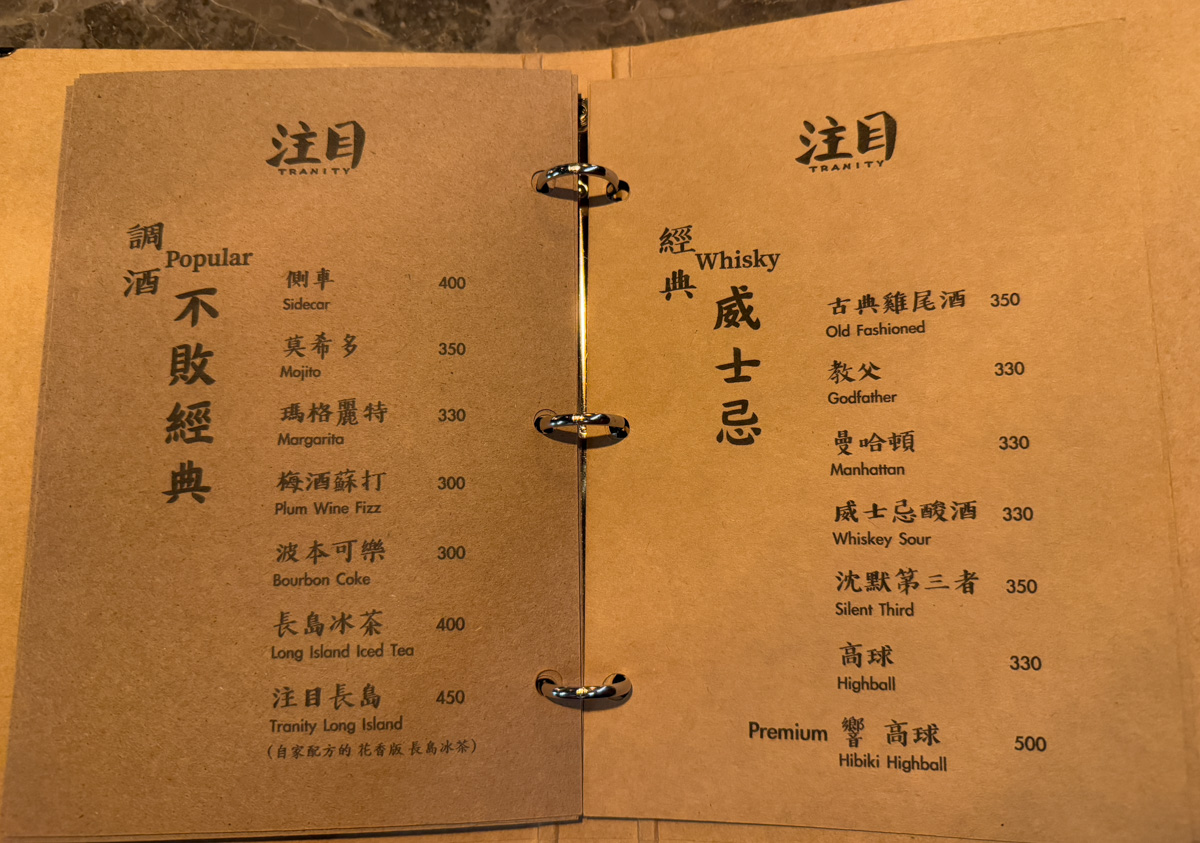 注目
TRANITY
調酒
Popular
不敗經典
側車 400
Sidecar
莫希多 350
Mojito
瑪格麗特 330
Margarita
梅酒蘇打 300
Plum Wine Fizz
波本可樂 300
Bourbon Coke
長島冰茶 400
Long Island Iced Tea
注目長島 450
Tranity Long Island
(自家配方的 花香版 長島冰茶)
注目
TRANITY
經典
Whisky
威士忌
古典雞尾酒 350
Old Fashioned
教父 330
Godfather
曼哈頓 330
Manhattan
威士忌酸酒 330
Whiskey Sour
沈默第三者 350
Silent Third
高球 330
Highball
Premium 響 高球 500
Hibiki Highball